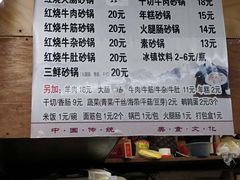 红烧大肠砂锅 千切牛肉砂锅 18元
红烧牛肉砂锅 20元 年糕砂锅 15元
红烧牛筋砂锅 20元 火腿肠砂锅 14元
红烧牛杂砂锅 20元 素砂锅 13元
红烧牛肚砂锅 20元 冰镇饮料 2~6元/瓶
三鲜砂锅 20元
另加: 羊肉 18元 大肠 牛肉/牛筋/牛杂/牛肚 11元 年糕 2元
千切/香肠 9元 蔬菜(青菜/干丝/海带/千菇/豆芽) 2元 鹌鹑蛋 2元/3个
米饭 1元/碗 面筋包 1元/2个 锅巴 1元/包 火腿肠 1元/片 打包盒 1元/个
中·国·传·统 美·食·文·化